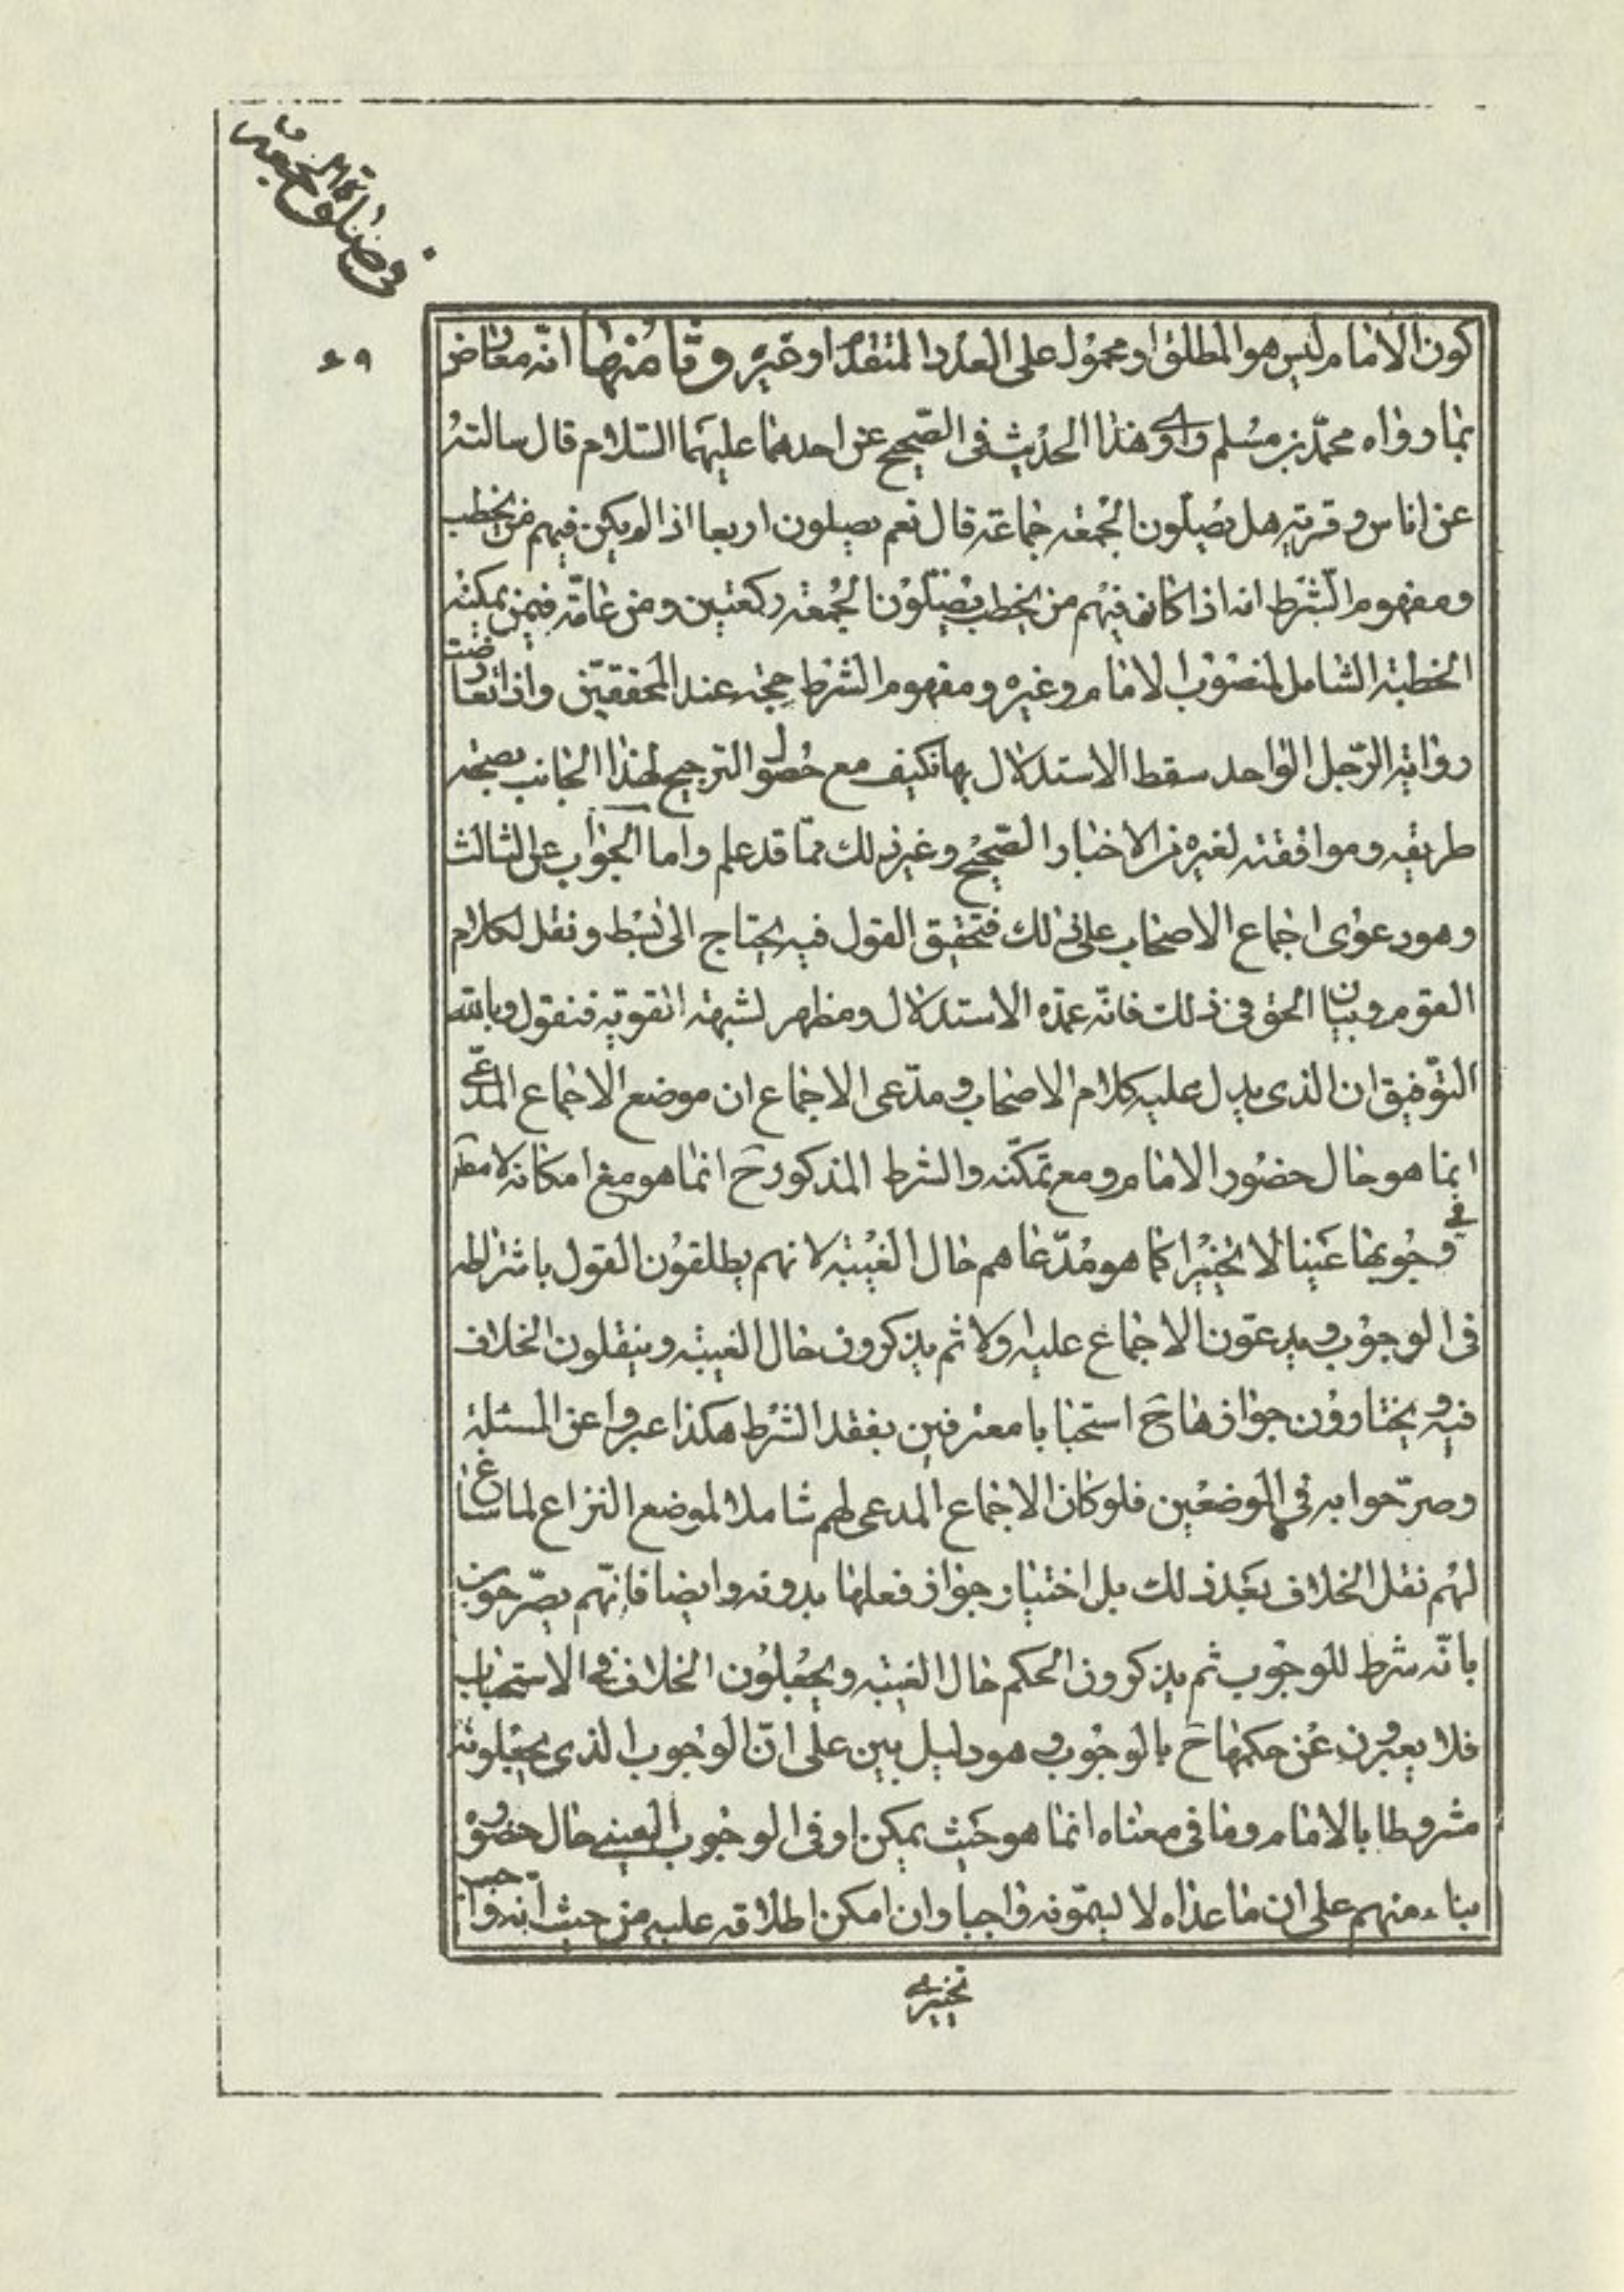 في صلوة الجمعة
٦٩
كون الامام ليس هو المطلق او محمول على العدد المتقدم او غيره وثامنها انه معارض
بما رواه محمد بن مسلم راوى هذا الحديث فى الصحيح عن احدهما عليهما السلام قال سالته
عن اناس فى قرية هل يصلون الجمعة جماعة قال نعم يصلون اربعا اذا لم يكن فيهم من يخطب
ومفهوم الشرط انه اذا كان فيهم من يخطب يصلون الجمعة ركعتين ومن عامة فيمن يمكنه
الخطبة الشامل لمنصوب الامام وغيره ومفهوم الشرط حجة عند المحققين واذا تعارضت
رواية الرجل الواحد سقط الاستدلال بها فكيف مع حصول الترجيح لهذا الجانب بصحة
طريقه وموافقته لغيره من الاخبار الصحيحة وغير ذلك مما قد علم واما الجواب عن الثالث
وهو دعوى اجماع الاصحاب على ذلك فتحقيق القول فيه يحتاج الى بسط ونقل لكلام
القوم وبيان الحق فى ذلك فانه عمدة الاستدلال ومظهر لشبهة القوية فنقول وبالله
التوفيق ان الذى يدل عليه كلام الاصحاب ومدعى الاجماع ان موضع الاجماع المدعى
انما هو حال حضور الامام ومع تمكنه والشرط المذكور ح انما هو مع امكانه لا مطلقا
فى وجوبها عينا لا تخييرا كما هو مدعاهم حال الغيبة لانهم يطلقون القول باشتراطه
فى الوجوب ويدعون الاجماع عليه اولا ثم يذكرون حال الغيبة وينقلون الخلاف
فيه ويختارون جوازها ح استحبابا معترفين بفقد الشرط هكذا عبروا عن المسئلة
وصرحوا به فى الموضعين فلو كان الاجماع المدعى لهم شاملا لموضع النزاع لما ساغ
لهم نقل الخلاف بعد ذلك بل اختيار جواز فعلها بدونه وايضا فانهم يصرحون
بانه شرط للوجوب ثم يذكرون الحكم حال الغيبة ويجعلون الخلاف فى الاستحباب
فلا يعبرون عن حكمها ح بالوجوب وهو دليل بين على ان الوجوب الذى يجعلونه
مشروطا بالامام وما فى معناه انما هو حيث يمكن او فى الوجوب العينى حال حضوره
بناء منهم على ان ما عداه لا يسمونه واجبا وان امكن اطلاقه عليه من حيث انه واجب
تخييرى